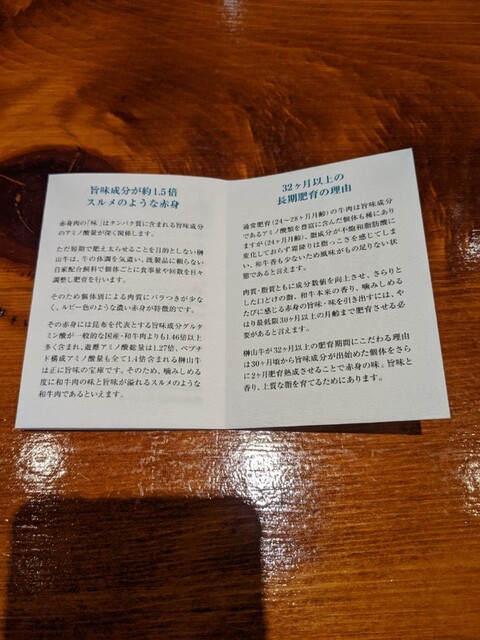 旨味成分が約1.5倍
スルメのような赤身
赤身肉の「味」はタンパク質に含まれる旨味成分
のアミノ酸量が深く関係します。
ただ短期で肥え太らせることを目的としない榊
山牛は、牛の体調を気遣い、既製品に頼らない
自家配合飼料で個体ごとに食事量や回数を日々
調整し肥育を行います。
そのため個体別による肉質にバラつきが少な
く、ルビー色のような濃い赤身が特徴的です。
その赤身は昆布を代表とする旨味成分グルタ
ミン酸が一般的な国産・和牛肉よりも1.46倍以上
多く含まれ、遊離アミノ酸総量は1.27倍、ペプチ
ド構成アミノ酸量も全て1.4倍含まれる榊山牛
は正に旨味の宝庫です。そのため、噛みしめる
度に和牛肉の味と旨味が溢れるスルメのような
和牛肉であるといえます。
32ヶ月以上の
長期肥育の理由
通常肥育(24〜28ヶ月月齢)の牛肉は旨味成分
であるアミノ酸類を豊富に含んだ個体も稀にあり
ますが(24ヶ月月齢)、脂成分が不飽和脂肪酸に
変化しておらず霜降りは脂っこさを感じてしま
い、和牛香も少ないため風味がもの足りない状
態であると言えます。
肉質・脂質ともに成分数値を向上させ、さらりと
した口どけの脂、和牛本来の香り、噛みしめる
たびに感じる赤身の旨味・味を引き出すには、や
はり最低限30ヶ月以上の月齢まで肥育させる必
要があると言えます。
榊山牛が32ヶ月以上の肥育期間にこだわる理由
は30ヶ月頃から旨味成分が出始めた個体をさら
に2ヶ月肥育熟成させることで赤身の味。旨味と
香り、上質な脂を育てるためにあります。